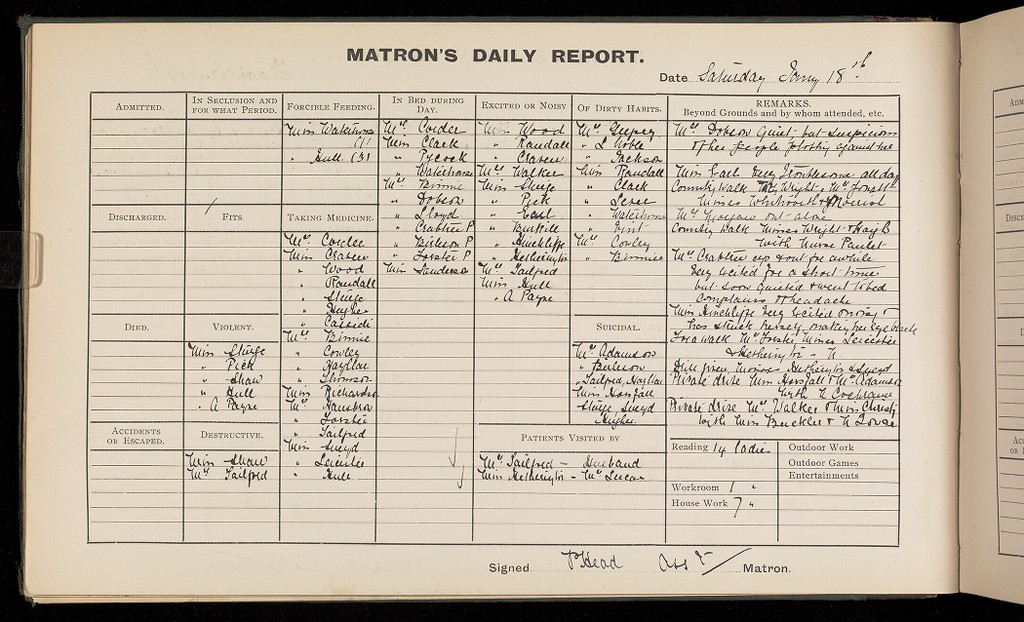 MATRON'S DAILY REPORT.
Date Saturday Jany 18th
ADMITTED.
IN SECLUSION AND FOR WHAT PERIOD.
FORCIBLE FEEDING.
Miss Waterhouse
(1)
" Hull (3)
IN BED DURING DAY.
Mrs Corder
Miss Clark
" Pycock
" Waterhouse
Mrs Binnie
" Dobson
" Lloyd
" Crabtree P
" Buteson P
" Forster P
Miss Sanderson
EXCITED OR NOISY
Miss Wood
" Randall
" Craven
Mrs Walker
Miss Sturge
" Peck
" Earl
"
" Hinchliffe
" Hetherington
Mrs Tailford
Miss Hull
" A Payne
OF DIRTY HABITS.
Mrs
" L Noble
" Jackson
Miss Randall
" Clark
"
" Waterhouse
" Vint
Mrs Cowley
" Binnie
REMARKS.
Beyond Grounds and by whom attended, etc.
Mrs Dobson Quiet but suspicious
of her people plotting against her
Miss Earl Very troublesome all day
Country Walk Mrs Wright, Mrs
Misses Whitworth &
Mrs out alone
Country Walk Misses Wright & Haigh
with Nurse
Mrs Crabtree up & out for awhile
Very excited for a short time
but soon quieted & went to bed
complains of headache
Miss Hinchliffe Very excited & noisy &
has struck herself making her eye black
For a walk Mrs Forster, Misses Leicester
& Hetherington - N
given, Misses Hetherington & Sneyd
Private drive Miss Horsfall & Mrs Adamson
with N Cochrane
Private drive Mrs Walker & Miss Christy
with Miss Buckler & N
DISCHARGED.
FITS
TAKING MEDICINE.
Mrs Corder
Miss Craven
" Wood
" Randall
" Sturge
" Hughes
" Cassidi
Mrs Binnie
" Cowley
" Hayllar
" Thomson
Miss Richardson
Mrs
" Forster
" Tailford
Miss Sneyd
" Leicester
" Hull
DIED.
VIOLENT.
Miss Sturge
" Peck
" Shaw
" Hull
" A Payne
SUICIDAL.
Mrs Adamson
" Buteson
" Tailford, Hayllar
Miss Horsfall
Sturge Sneyd
Hughes
ACCIDENTS OR ESCAPED.
DESTRUCTIVE.
Miss Shaw
Mrs Tailford
PATIENTS VISITED BY
Mrs Tailford - Husband
Miss Hetherington - Mrs Lucas
Reading 14 ladies
Workroom 1 "
House Work 7 "
Outdoor Work
Outdoor Games
Entertainments
Signed P Head Asst Matron.